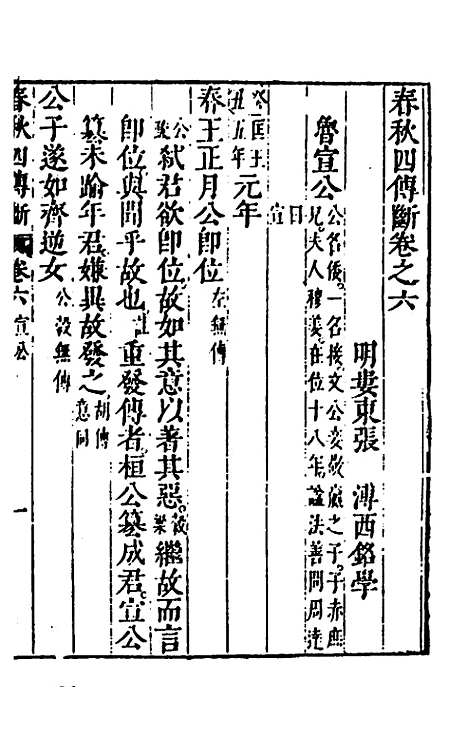 春秋四傳斷卷之六
明婁東張　溥西銘學
魯宣公公名倭。一名接。文公妾敬嬴之子。子赤庶
兄。夫人穆姜。在位十八年。諡法善問周達
曰宣
匡王
五年元年
春王正月公即位左無傳
公弒君欲即位。故如其意以著其惡。穀梁繼故而言
即位與聞乎故也。註重發傳者。桓公篡成君。宣公
篡未踰年君。嫌異故發之。胡傳意同
公子遂如齊逆女公穀無傳
春秋四傳斷　卷六宣公　一